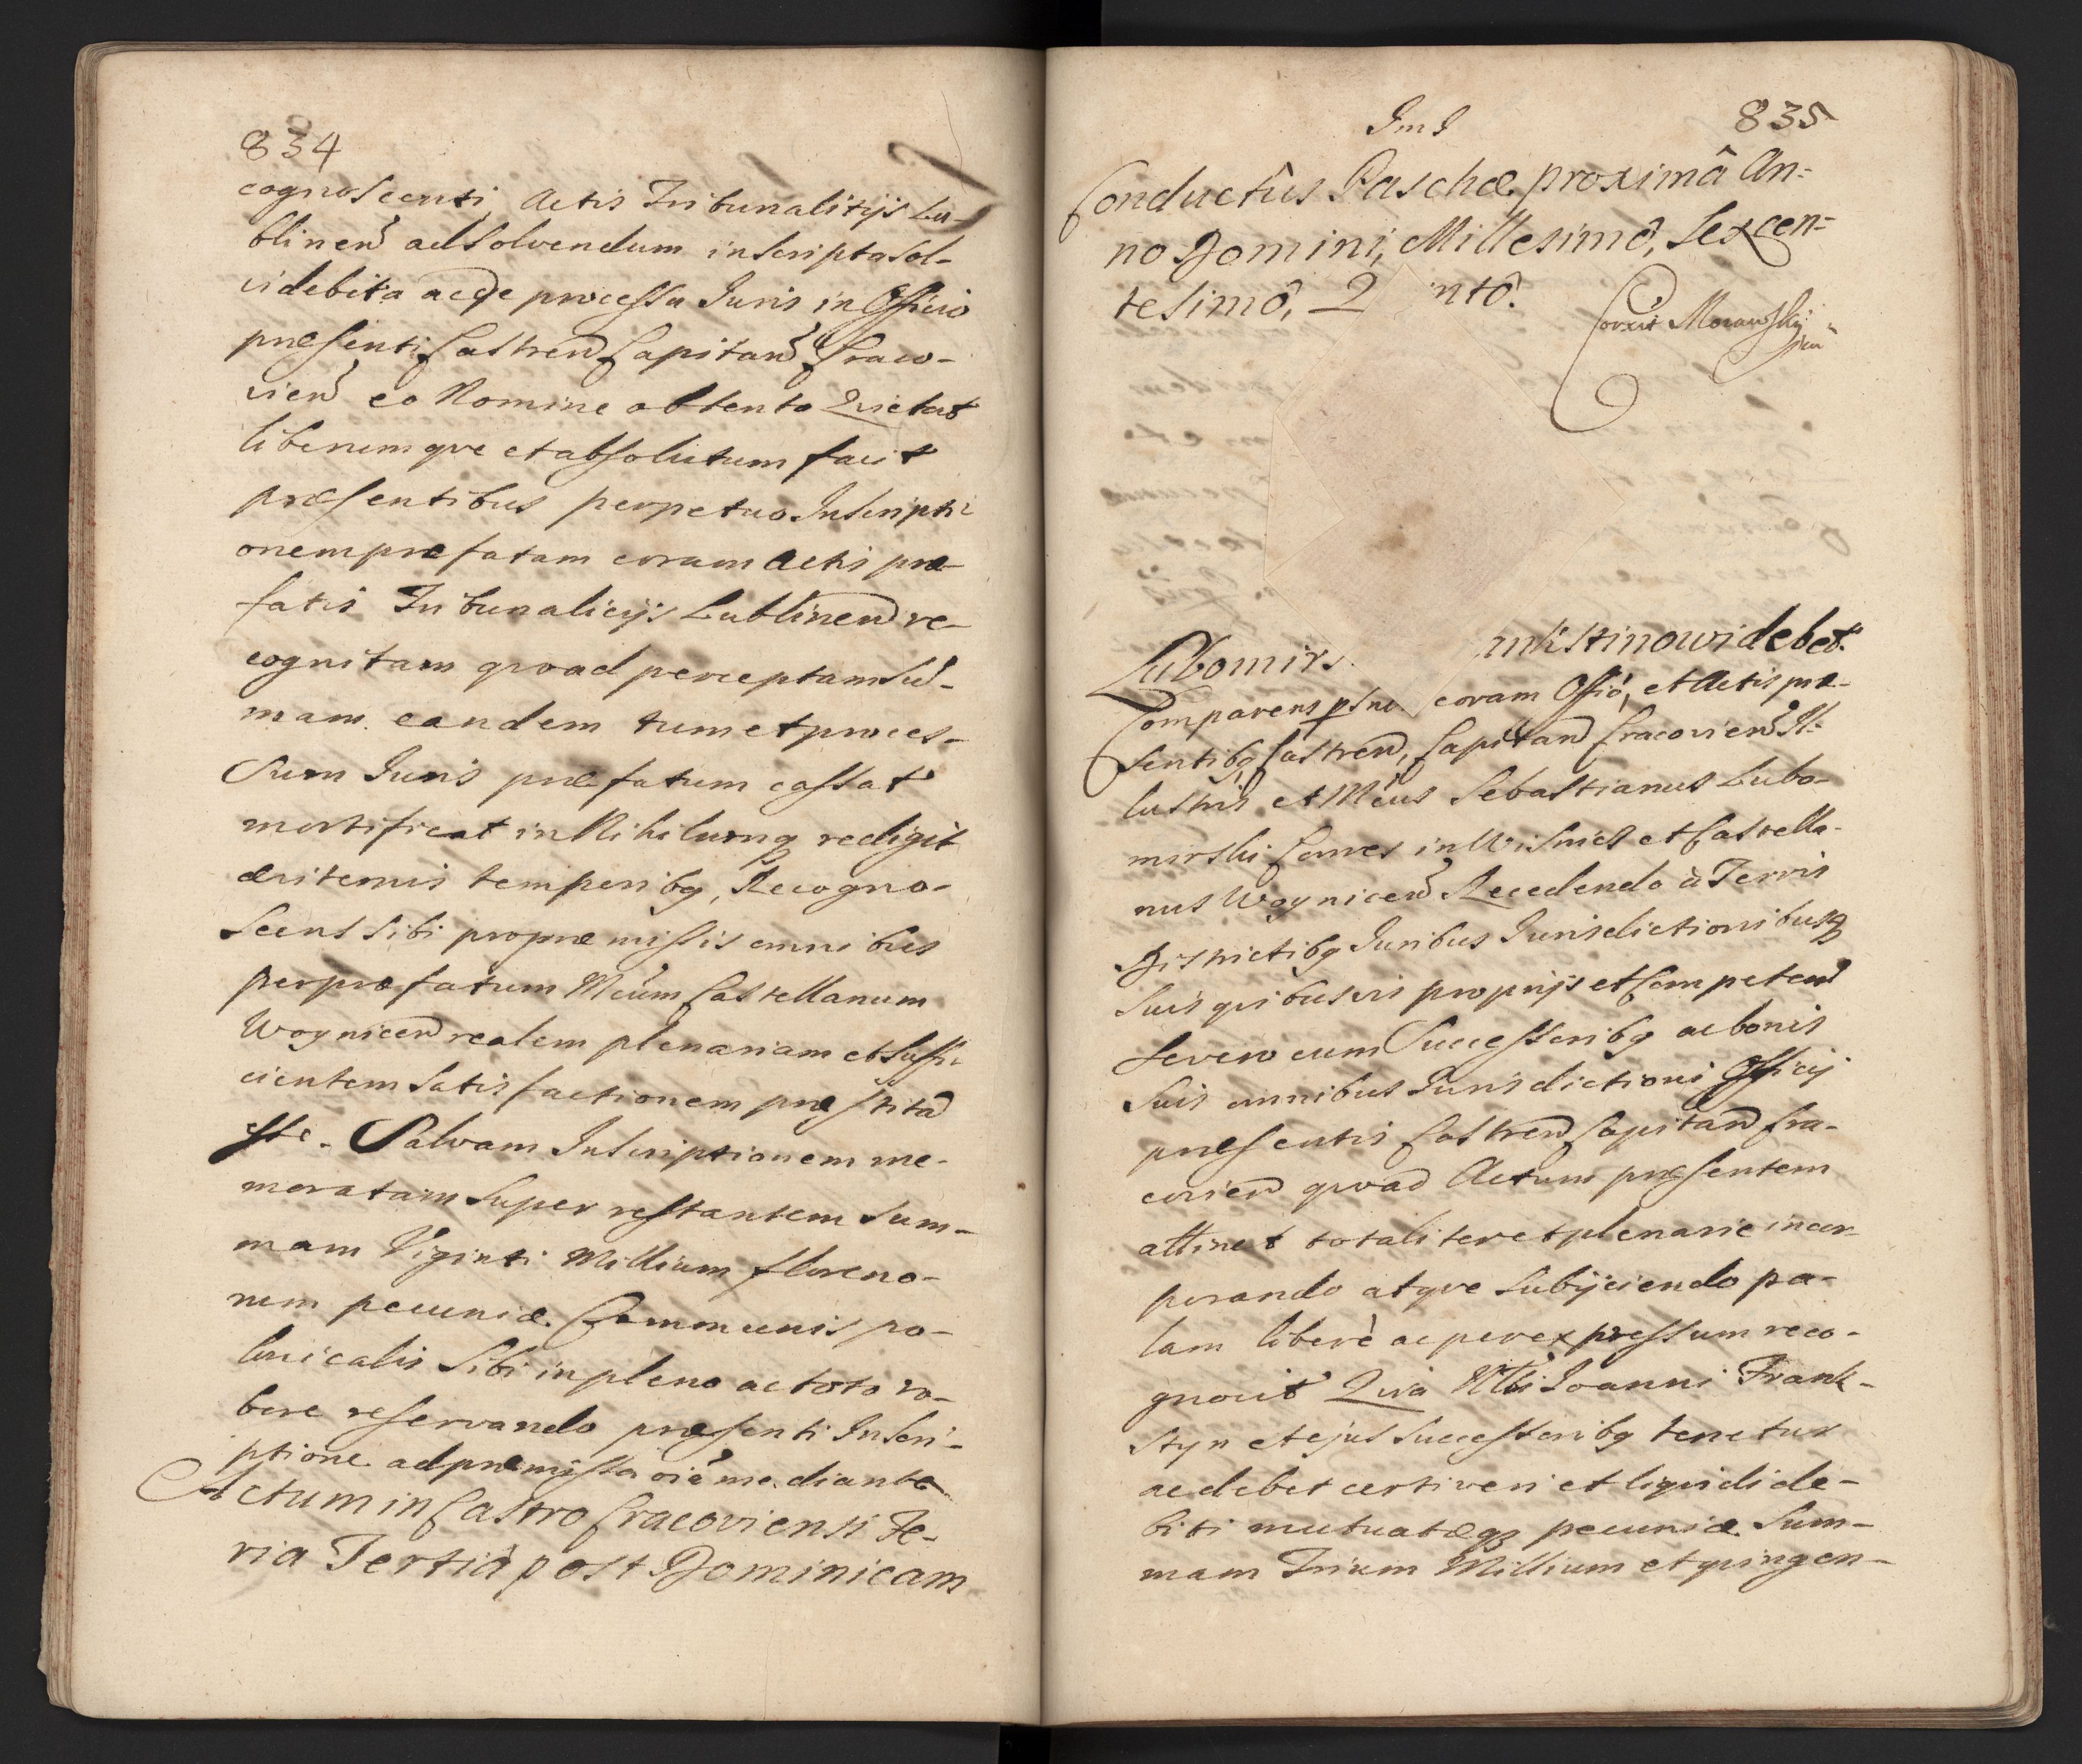 834
cognoscenti Actis Tribunalitijs Lu-
blinen̄ ad solvendum inscripta sol-
vi debita acqe processu Iuris in Officio
præsenti Castren̄ Capitan̄ Craco-
vien̄ eo Nomine obtento Quietat
liberumque et absolutum facit
præsentibus perpetuo Inscripti
onem præfatam coram Actis præ-
fatis Tribunalicijs Lublinen̄ re-
cognitam quoad perceptam Sū-
mam eandem tum et proces-
sum Iuris præfatum cassat
mortificat in Nihilumq redigit
æviternis temporibq, Recogno-
scens sibi pro præmissis omnibus
per præfatum Mcum Castellanum
Woynicen̄ realem plenariam et suffi-
cientem Satisfactionem præstitā
esse. Salvam Inscriptionem me-
moratam super restantem Sum-
mam Viginti Millium floreno-
rum pecuniæ Communis po-
lonicalis sibi in pleno ac toto ro-
bore reservando præsenti Inscri-
ptione ad præmissa oīa mediante
Actum in Castro Cracoviensi Fe-
ria Tertiâ post Dominicam
835
Conductûs Paschæ proximâ An-
no Domini, Millesimô, Sexcen-
tesimô, Q intô.
Correxit Morawskij
Lubomirs. nkstinowi debet.
Comparens psne coram Offiō, et Actis præ-
sentibq Castren̄, Capitan̄ Cracovien̄ Il-
lustris et Mcus Sebastianus Lubo-
mirski Comes in Wisnicz et Castella-
nus Woynicen̄ Recedendo à Terris
Districtibq Iuribus Iurisdictionibusq
suis quibusvis proprijs et Competen̄
se vero cum Successoribq ac bonis
suis omnibus Iurisdictioni Officij
præsentis Castren̄ Capitan̄ Cra-
covien̄ quoad Actum præsentem
attinet totaliter et plenarie incor-
porando atque subijciendo pa-
lam liberè ac per expressum reco-
gnovit Quia Nbli Ioanni Frank-
styn et ejus Successoribq tenetur
ac debet certi veri et liquidi de-
biti mutuatæqz pecuniæ Sum-
mam Trium Millium et quingen-